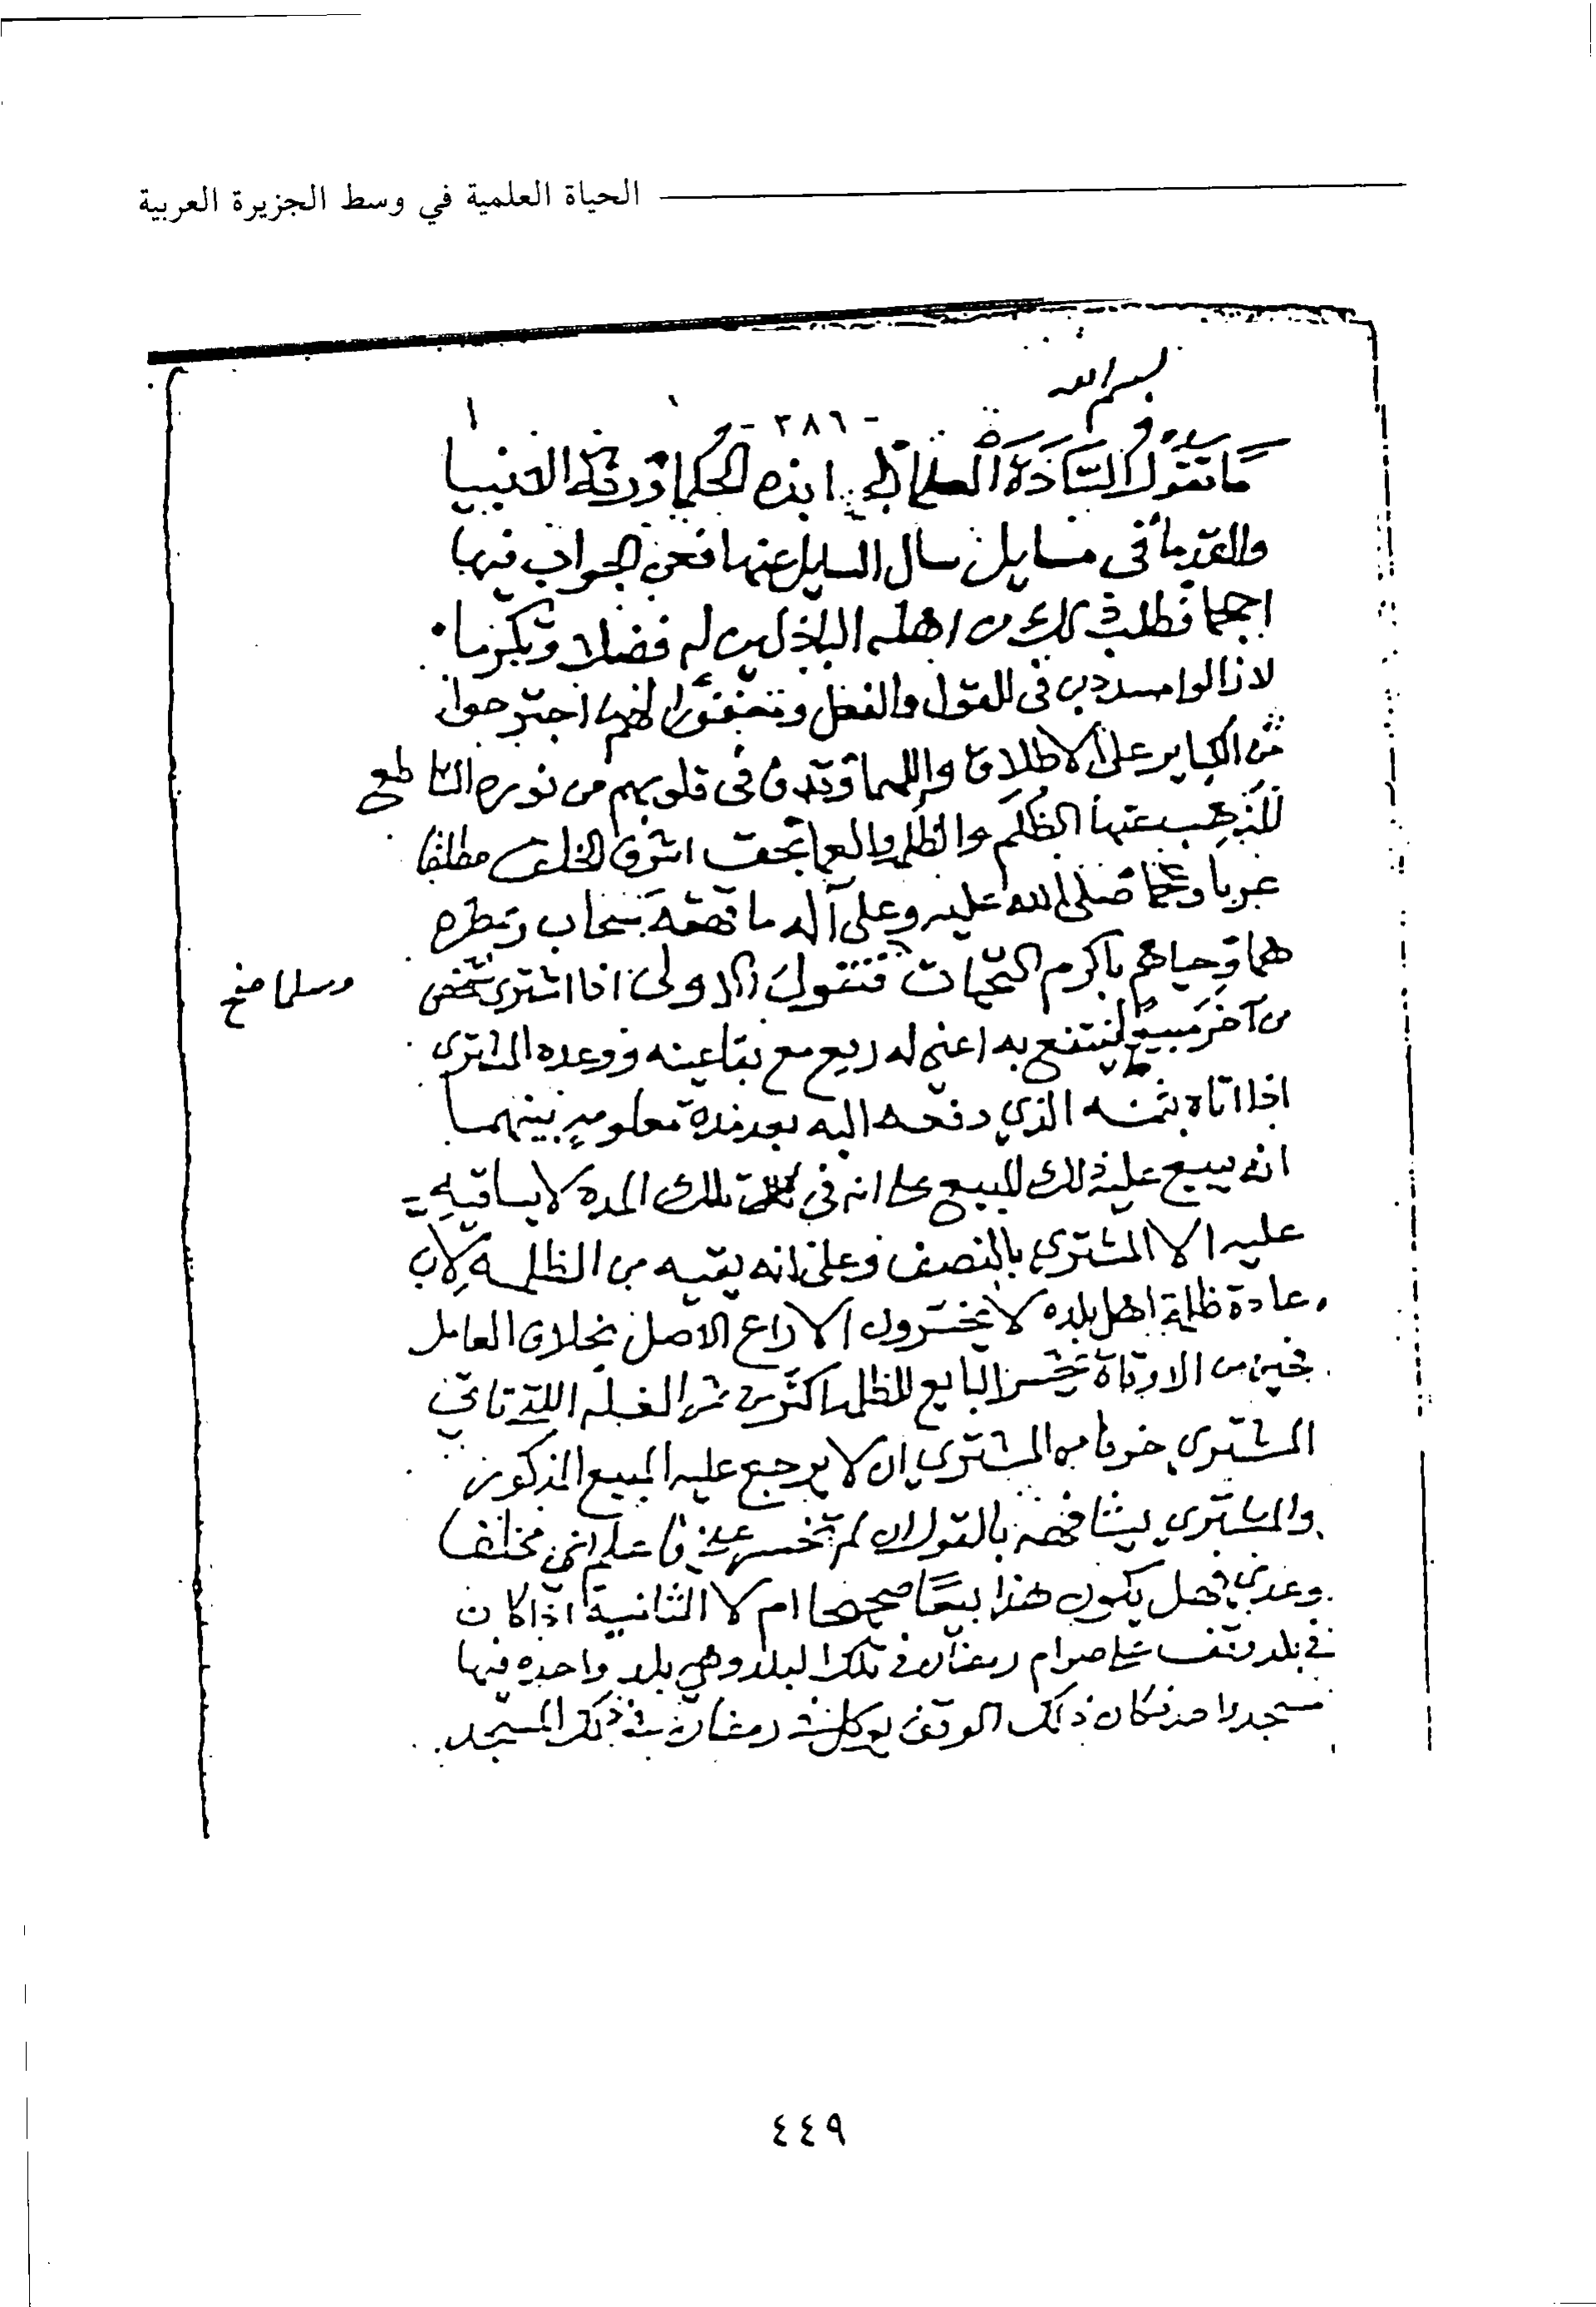 الحياة العلمية في وسط الجزيرة العربية
بسم الله
- ٣٨٦ -
ما تقول السادة العلما
والقدما في مسايل سال السايل عنها فعن الجواب فيها
فطلب ذلك من اهله الباذلين له فضلا وتكرما
لا زالوا مسددين في القول والفعل
من الكباير على الاطلاق واللهما وقدفا في قلوبهم من نوره الساطع
لتذهب عنها الظلم والظلم والعما بحق اشرف الخلق مطلقا
عربا وعجما صلى الله عليه وعلى آله ما قهقه سحاب وقطره
هما وحياهم باكرم التحيات فنقول الاولى اذا اشترى شخص
وسلما صح
من آخر مبيعا لينتفع به اعني له ريع مع بقا عينه ووعده المشتري
اذا اتاه بثمنه الذي دفعه اليه بعد مدة معلومة بينهما
انه يبيع عليه ذلك المبيع على انه في تلك المدة لا يساقيه
عليه الا المشتري بالنصف وعلى انه يقيه من الظلمه لان
عادة ظلمة اهل بلده لا يخسرون الا راع الاصل بخلاف العامل
فحين من الاوقاة يخسر البايع للظلمه اكثر من ثمن الغله اللتي تاتي
المشتري خوفا من المشتري ان لا يرجع عليه المبيع المذكور
والمشتري يشافهه بالقول ان لم تخسر عني فاعلم اني مخلفا
وعدي فهل يكون هذا بيعا صحيحا ام لا الثانية اذا كان
في بلد وقف على صوام رمضان في تلك البلد وهي بلد واحده فيها
مسجد واحد فكان ذلك الوقف يوكل في رمضان في ذلك المسجد
٤٤٩